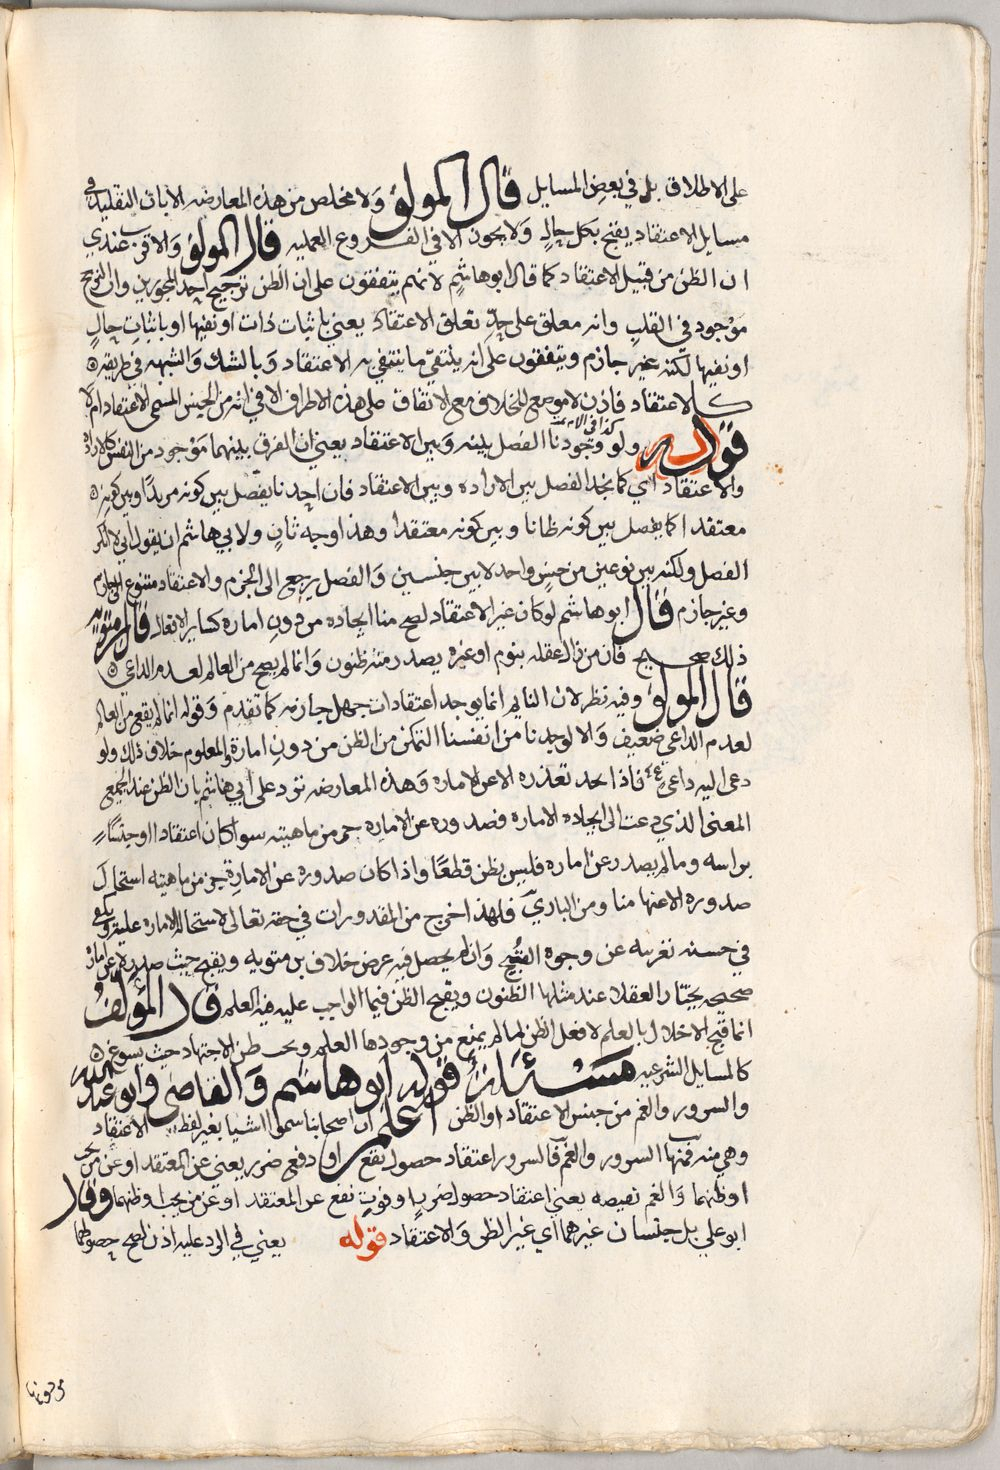 على الاطلاق بل في بعض المسايل قال المولف ولا مخلص من هذه المعارضه الا بان التقليد في
مسايل الاعتقاد يقبح بكل حال ولا يجوز الا في الفروع العمليه قال المولف والاقرب عندي
ان الظن من قبيل الاعتقاد كما قال ابوهاشم لانهم يتفقون على ان الظن ترجيح احد المجوزين وان الترجيح
موجود في القلب وانه معلق على حد تعلق الاعتقاد يعني باثبات ذات او نفيها او باثبات حال
او نفيها لكنه غير جازم ويتفقون على انه ينتفي ما ينتفي به الاعتقاد وبالشك والشبهه في طريقه
كالاعتقاد فاذن لا موضع للخلاف مع الاتفاق على هذه الاطراف الا في انه من الجنس المسمى بالاعتقاد ام لا
قوله ولو وجودنا الفصل بينه وبين الاعتقاد يعني ان الفرق بينهما موجود من النفس كالاراده
كذا في الام
والاعتقاد اي كما نجد الفصل بين الاراده وبين الاعتقاد فان احدنا يفصل بين كونه مريدا وبين كونه
معتقدا كما يفصل بين كونه ظانا وبين كونه معتقدا وهذا وجه ثان ولابي هاشم ان يقول اني لا انكر
الفصل ولكنه بين نوعين من جنس واحد لا بين جنسين والفصل يرجع الى الجزم والاعتقاد متنوع الى جازم
وغير جازم قال ابوهاشم لو كان غير الاعتقاد لصح منا ايجاده من دون اماره كساير الافعال قال ابن متويه
ذلك صحيح فان من زال عقله بنوم او غيره يصدر منه ظنون وانما لم يصح من العالم لعدم الداعي
قال المولف وفيه نظر لان النايم انما يوجد اعتقادات جهل جازمه كما تقدم وقوله انما لم يقع من العالم
لعدم الداعي ضعيف والا لوجدنا من انفسنا التمكن من الظن من دون امارة والمعلوم خلاف ذلك ولو
دعى اليه داعي فاذا احد تعذره الا عن الاماره وهذه المعارضه تود على ابي هاشم بان الظن عند الجميع
المعنى الذي دعت الى ايجاده الاماره فصدوره عن الاماره جز من ماهيته سوا كان اعتقادا او جنسا
براسه وما لم يصدر عن اماره فليس بظن قطعا واذا كان صدوره عن الامارة جز من ماهيته استحال
صدوره الا عنها منا ومن الباري فلهذا خرج من المقدورات في حقه تعالى لاستحالة الاماره عليه ويكفي
في حسنه تعريه عن وجوه القبح وان لم يحصل فيه عرض خلاف بن متويه ويقبح حيث صدر لا عن امارة
صحيحه يختار العقلا عند مثلها الظنون ويقبح الظن فيما الواجب عليه فيه العلم قال المؤلف
انما قبح الاخلال بالعلم لا فعل الظن لما لم يمنع من وجود هذا العلم وحسن ظن الاجتهاد حيث يسوغ
كالمسايل الشرعيه مسئلة قوله ابوهاشم والقاضي وابو عبدالله
والسرور والغم من جنس الاعتقاد او الظن اعلم ان اصحابنا سموا اشيا بغير لفظ الاعتقاد
وهي منه فمنها السرور والغم فالسرور اعتقاد حصول نفع او دفع ضرر يعني عن المعتقد او عن من يحب
او ظنهما والغم نقيضه يعني اعتقاد حصول ضرر او فوت نفع عن المعتقد او عن من يحب او ظنهما وقال
ابو علي بل جنسان غيرهما اي غير الظن والاعتقاد قوله يعني في الرد عليه اذن لصح حصولهما
من دونها